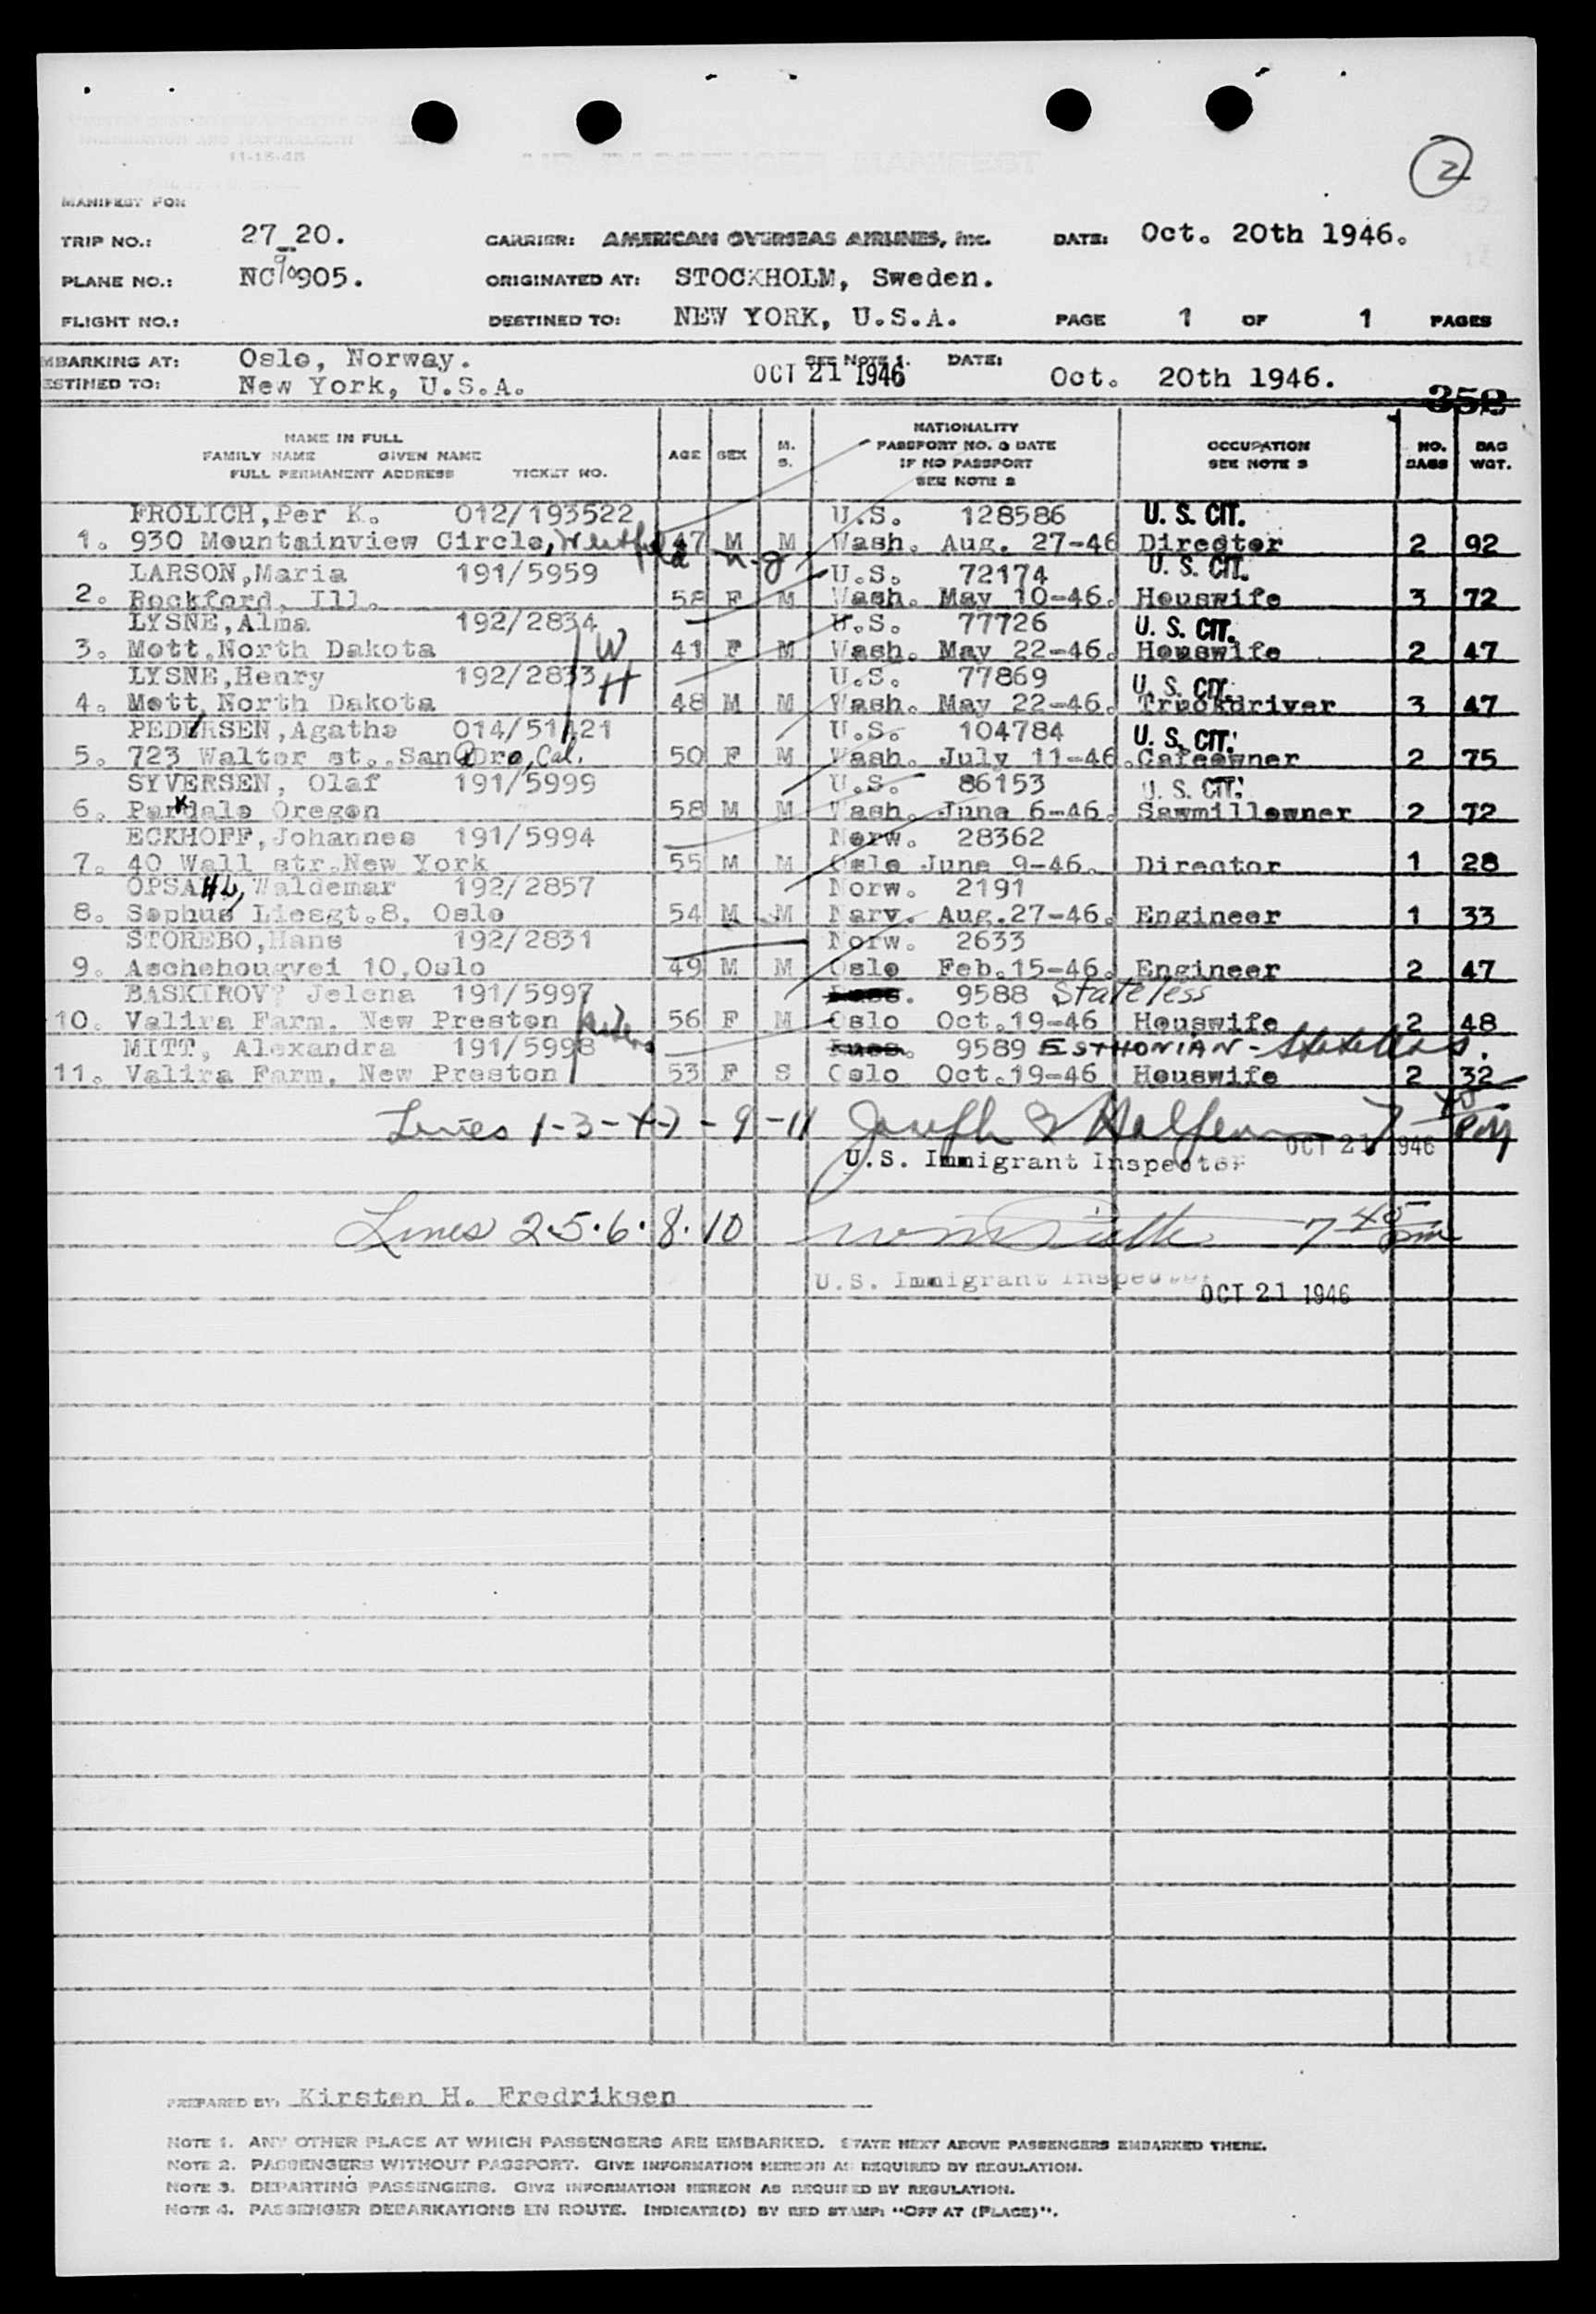 2
MANIFEST FOR
TRIP NO.: 27_20. CARRIER: AMERICAN OVERSEAS AIRLINES, Inc. DATE: Oct. 20th 1946.
PLANE NO.: NC90905. ORIGINATED AT: STOCKHOLM, Sweden.
FLIGHT NO.: DESTINED TO: NEW YORK, U.S.A. PAGE 1 OF 1 PAGES
MBARKING AT: Oslo, Norway. SEE NOTE 1. DATE:
ESTINED TO: New York, U.S.A. OCT 21 1946 Oct. 20th 1946.
358
NAME IN FULL
FAMILY NAME GIVEN NAME
FULL PERMANENT ADDRESS TICKET NO.
AGE SEX M. S.
NATIONALITY
PASSPORT NO. & DATE
IF NO PASSPORT
SEE NOTE 2
OCCUPATION
SEE NOTE 3
NO. BAGS
BAG WGT.
FROLICH,Per K. 012/193522 U.S. 128586 U. S. CIT.
1. 930 Mountainview Circle, Westfield N.J. 47 M M Wash. Aug. 27-46 Director 2 92
LARSON,Maria 191/5959 U.S. 72174 U. S. CIT.
2. Rockford, Ill. 58 F M Wash. May 10-46. Houswife 3 72
LYSNE,Alma 192/2834 W U.S. 77726 U. S. CIT.
3. Mott,North Dakota 41 F M Wash. May 22-46. Houswife 2 47
LYSNE,Henry 192/2833 H U.S. 77869 U. S. CIT.
4. Mott, North Dakota 48 M M Wash. May 22-46. Truckdriver 3 47
PEDERSEN,Agathe 014/51421 U.S. 104784 U. S. CIT.
5. 723 Walter st..San Pdro, Cal. 50 F M Wash. July 11-46. Cafeowner 2 75
SYVERSEN, Olaf 191/5999 U.S. 86153 U. S. CIT.
6. Parkdale Oregon 58 M M Wash. June 6-46. Sawmillowner 2 72
ECKHOFF,Johannes 191/5994 Norw. 28362
7. 40 Wall str.New York 55 M M Oslo June 9-46. Director 1 28
OPSAHL, Waldemar 192/2857 Norw. 2191
8. Sophus Liesgt.8, Oslo 54 M M Narv. Aug.27-46. Engineer 1 33
STOREBO,Hans 192/2831 Norw. 2633
9. Aschehougvei 10,Oslo 49 M M Oslo Feb.15-46. Engineer 2 47
BASKIROV? Jelena 191/5997 Russ. 9588 Stateless
10. Valira Farm, New Preston Sisters 56 F M Oslo Oct.19-46 Houswife 2 48
MITT, Alexandra 191/5998 Russ. 9589 ESTHONIAN - Stateless.
11. Valira Farm, New Preston 53 F S Oslo Oct.19-46 Houswife 2 32
Lines 1-3-4-7-9-11 Joseph 7 PM
U.S. Immigrant Inspector OCT 21 1946
Lines 2.5.6.8.10 7 45 pm
U.S. Immigrant Inspector
OCT 21 1946
PREPARED BY: Kirsten H. Fredriksen
NOTE 1. ANY OTHER PLACE AT WHICH PASSENGERS ARE EMBARKED. STATE NEXT ABOVE PASSENGERS EMBARKED THERE.
NOTE 2. PASSENGERS WITHOUT PASSPORT. GIVE INFORMATION HEREON AS REQUIRED BY REGULATION.
NOTE 3. DEPARTING PASSENGERS. GIVE INFORMATION HEREON AS REQUIRED BY REGULATION.
NOTE 4. PASSENGER DEBARKATIONS EN ROUTE. INDICATE(D) BY RED STAMP: "OFF AT (PLACE)".